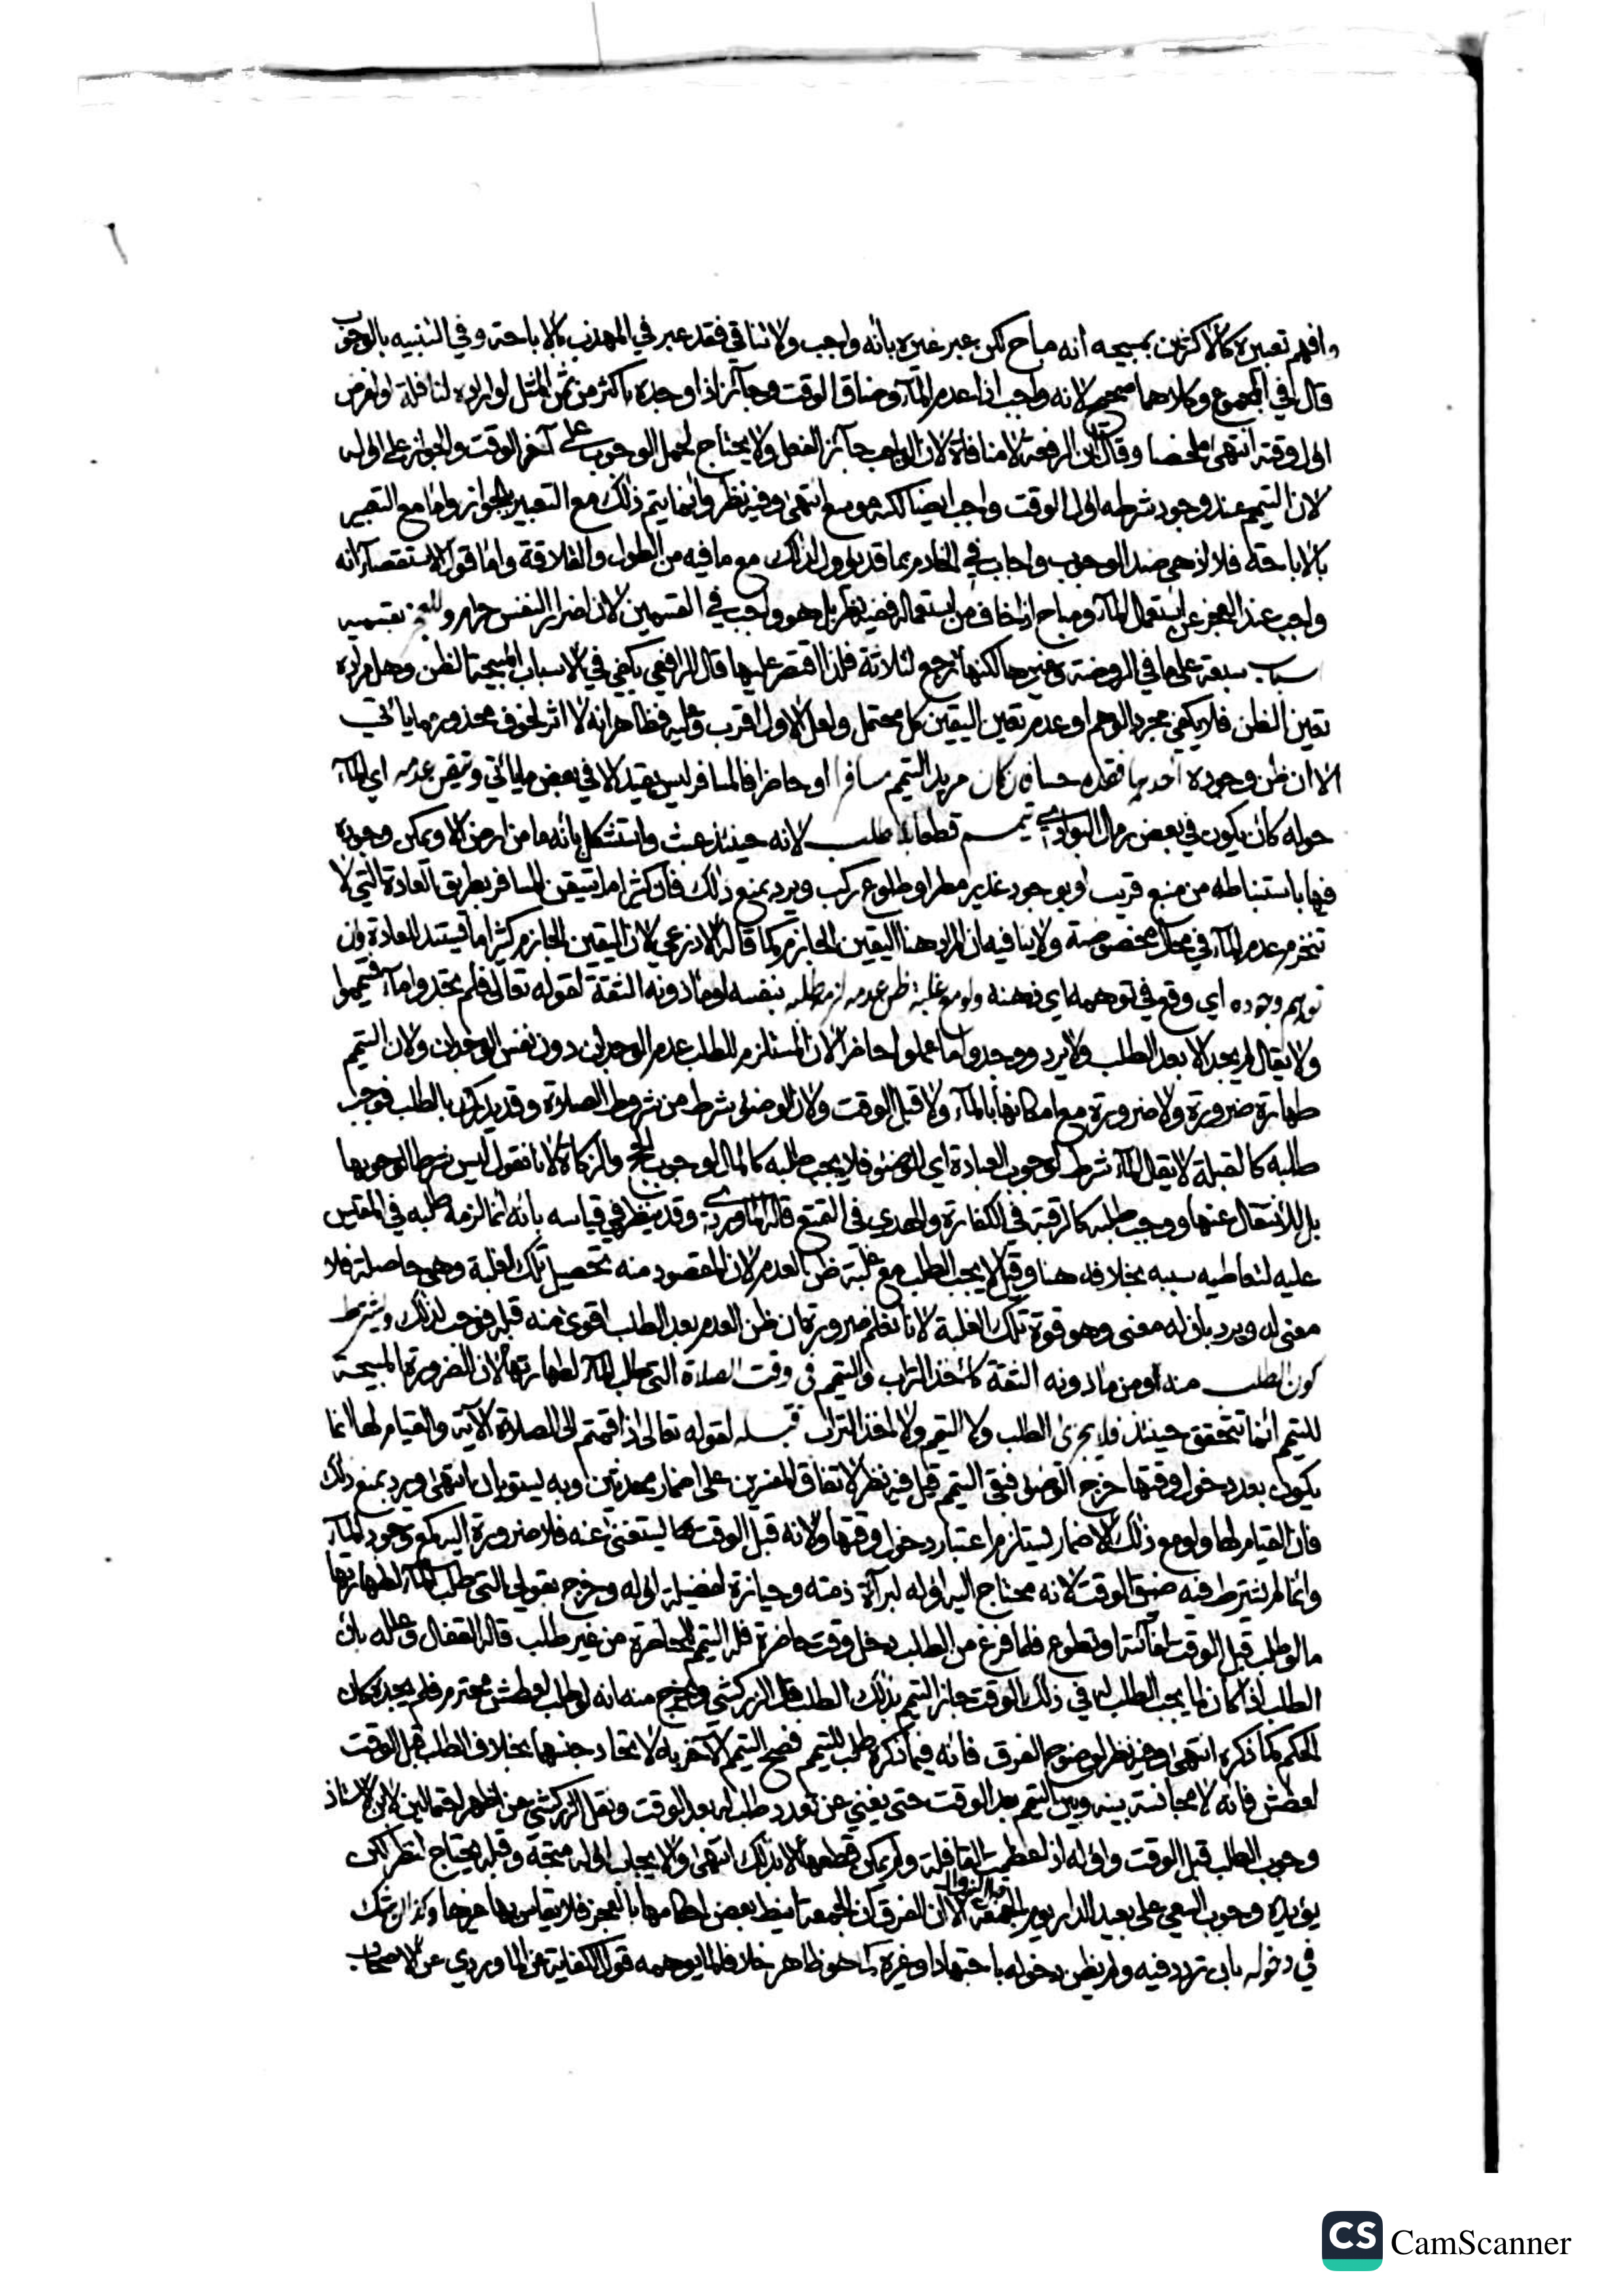 وافهم تعبيره كالاكثرين بمبيحه انه مباح لكن عبر غيره بانه واجب ولا تنافي فقد عبر في المهذب بالاباحة وفي التنبيه بالوجوب
قال في المجموع وكلاهما صحيح لانه واجب اذا عدم الماء وضاق الوقت وجائز اذا وجده باكثر من ثمن المثل او اراده لنافلة او لفرض
اول وقته انتهى ملخصا وقال ابن الرفعة لا منافاة لان الواجب جائز الفعل ولا يحتاج لحمل الوجوب على آخر الوقت والجواز على اوله
لان التيمم عند وجود شرطه اول الوقت واجب ايضا لكنه موسع انتهى وفيه نظر وانما يتم ذلك مع التعبير بالجواز واما مع التعبير
بالاباحة فلا اذ هي ضد الوجوب واجاب في الخادم بما قد يؤول لذلك مع ما فيه من الطول والقلاقة واما قول الاستقصاء انه
واجب عند العجز عن استعمال الماء ومباح اذا خاف من استعماله ففيه نظر بل هو واجب في القسمين لان اضرار النفس حرام وللعجز بقسميه
اسباب سبعة على ما في الروضة وغيرها لكنها ترجع لثلاثة فلذا اقتصر عليها قال الرافعي يكفي في الاسباب المبيحة الظن وهل مراده
تعين الظن فلا يكفي مجرد الوهم او عدم تعين اليقين كل محتمل ولعل الاول اقرب وعليه فظاهر انه لا اثر لخوف محذور مما ياتي
الا ان ظن وجوده احدها فقده حسا فان كان مريد التيمم مسافرا او حاضرا فالمسافر ليس بقيد الا في بعض ما ياتي وتيقن عدمه اي الماء
حوله كان يكون في بعض رمال البوادي تيمم قطعا بلا طلب لانه حينئذ عبث واستشكل بانه ما من ارض الا ويمكن وجوده
فيها باستنباطه من منبع قريب او بوجود غدير مطر او طلوع ركب ويرد بمنع ذلك فان كثيرا ما يتيقن المسافر بطريق العادة التي لا
تنخرم عدم الماء في محال مخصوصة ولا ينافيه ان المراد هنا اليقين الجازم كما قاله الاذرعي لان اليقين الجازم كثيرا ما يستند للعادة وان
توهم وجوده اي وقع في توهمه اي ذهنه ولو مع غلبة ظن عدمه لزمه طلبه بنفسه او ماذونه الثقة لقوله تعالى فلم تجدوا ماء فتيمموا
ولا يقال لم يجد الا بعد الطلب ولا يرد ووجدوا ما عملوا حاضرا لان المستلزم للطلب عدم الوجدان دون نفس الوجدان ولان التيمم
طهارة ضرورة ولا ضرورة مع امكانها بالماء ولا قبل الوقت ولان الوضوء شرط من شروط الصلاة وقد يدرك بالطلب فوجب
طلبه كالقبلة لا يقال الماء شرط لوجوب العبادة اي الوضوء فلا يجب طلبه كالمال لوجوب الحج والزكاة لانا نقول ليس شرطا لوجوبها
بل للانتقال عنها ووجب طلبه كالرقبة في الكفارة والهدي في التمتع قاله الماوردي وقد ينظر في قياسه بانه انما لزمه طلبه في المقيس
عليه لتعاطيه سببه بخلافه هنا وقيل لا يجب الطلب مع غلبة ظن العدم لان المقصود منه تحصيل تلك الغلبة وهي حاصلة فلا
معنى له ويرد بان له معنى وهو قوة تلك الغلبة لانا نعلم ضرورة ان ظن العدم بعد الطلب اقوى منه قبله فوجب لذلك ويشترط
كون الطلب منه او من ماذونه الثقة كاخذ التراب والتيمم في وقت الصلاة التي طلب الماء لطهارتها لان الضرورة المبيحة
للتيمم انما تتحقق حينئذ فلا يجزئ الطلب ولا التيمم ولا اخذ التراب قبله لقوله تعالى اذا قمتم الى الصلاة الآية والقيام لها انما
يكون بعد دخول وقتها خرج الوضوء فبقي التيمم قيل فيه نظر لاتفاق المفسرين على اضمار محدثين وبه يستويان انتهى ويرد بمنع ذلك
فان القيام لها ولو مع ذلك الاضمار يستلزم اعتبار دخول وقتها ولانه قبل الوقت مستغنى عنه فلا ضرورة اليه كمع وجود الماء
وانما لم يشترط فيه ضيق الوقت لانه محتاج اليه اوله لبراءة ذمته وحيازة لفضيلة اوله وخرج بقولي التي طلب الماء لطهارتها
ما لو طلب قبل الوقت لفائتة او تطوع فلما فرغ من الطلب دخل وقت حاضرة فله التيمم للحاضرة من غير طلب قاله القفال وعلله بان
الطلب اذا كان لما يجب الطلب له في ذلك الوقت جاز التيمم بذلك الطلب قال الزركشي وخرج منه انه لو طلب لعطش محترم فلم يجده كان
الحكم كما ذكره انتهى وفيه نظر لوضوح الفرق فانه فيما ذكره طلب للتيمم فصح التيمم الآخر به لاتحاد جنسهما بخلاف الطلب قبل الوقت
لعطش فانه لا مجانسة بينه وبين التيمم بعد الوقت حتى يغني عن تعدد طلب له بعد الوقت ونقل الزركشي عن اظهر احتمالين لابن الاستاذ
وجوب الطلب قبل الوقت او اوله اذا عظمت القافلة ولم يمكن قطعها الا بذلك انتهى والايجاب اوله متجه وقبله يحتاج لنظر لكن
يؤيده وجوب السعي على بعيد الدار يوم الجمعة قبل الزوال الا ان الفرق ان الجمعة انيط بعض احكامها بالفجر فلا يقاس بها غيرها وكذا لو شك
في دخوله بان تردد فيه ولم يظن دخوله باجتهاد او غيره كما هو ظاهر خلافا لما يوهمه قول الكفاية عن الماوردي عن الاصحاب
CS CamScanner